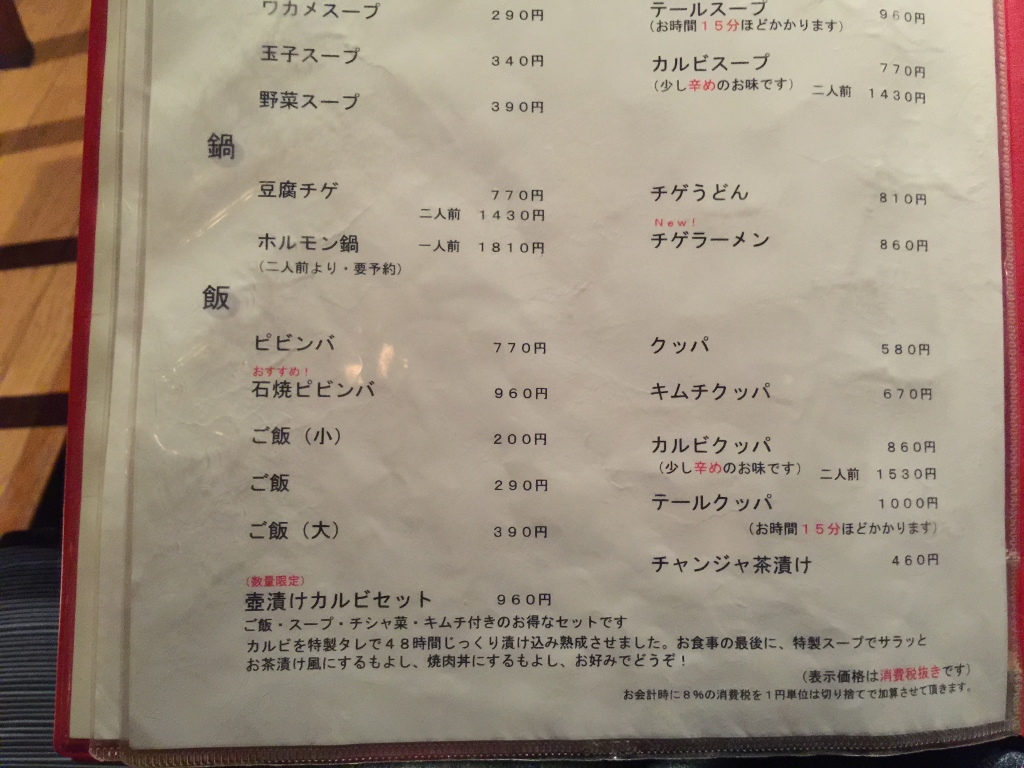 ワカメスープ 290円
玉子スープ 340円
野菜スープ 390円
テールスープ 960円
(お時間15分ほどかかります)
カルビスープ 770円
(少し辛めのお味です) 二人前 1430円
鍋
豆腐チゲ 770円
二人前 1430円
ホルモン鍋 一人前 1810円
(二人前より・要予約)
チゲうどん 810円
New!
チゲラーメン 860円
飯
ピビンバ 770円
おすすめ!
石焼ピビンバ 960円
ご飯(小) 200円
ご飯 290円
ご飯(大) 390円
クッパ 580円
キムチクッパ 670円
カルビクッパ 860円
(少し辛めのお味です) 二人前 1530円
テールクッパ 1000円
(お時間15分ほどかかります)
チャンジャ茶漬け 460円
(数量限定)
壺漬けカルビセット 960円
ご飯・スープ・チシャ菜・キムチ付きのお得なセットです
カルビを特製タレで48時間じっくり漬け込み熟成させました。お食事の最後に、特製スープでサラッと
お茶漬け風にするもよし、焼肉丼にするもよし、お好みでどうぞ!
(表示価格は消費税抜きです)
お会計時に8%の消費税を1円単位は切り捨てで加算させて頂きます。